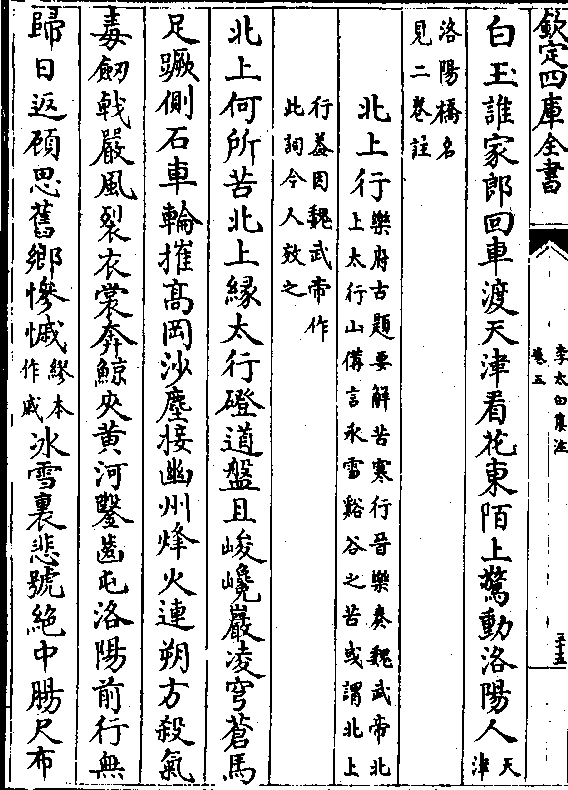 欽定四庫全書
李太白集注
卷五
三十五
白玉誰家郎回車渡天津看花東陌上驚動洛陽人天津
洛陽橋名
見二卷註
北上行樂府古題要解苦寒行晉樂奏魏武帝北
上太行山備言氷雪谿谷之苦或謂北上
行葢因魏武帝作
此詞今人效之
北上何所苦北上緣太行磴道盤且峻巉巖凌穹蒼馬
足蹶側石車輪摧髙岡沙塵接幽州烽火連朔方殺氣
毒劒戟嚴風裂衣裳奔鯨夾黄河鑿齒屯洛陽前行無
歸日返顧思舊鄉慘慽繆本作戚氷雪裏悲號絶中腸尺布